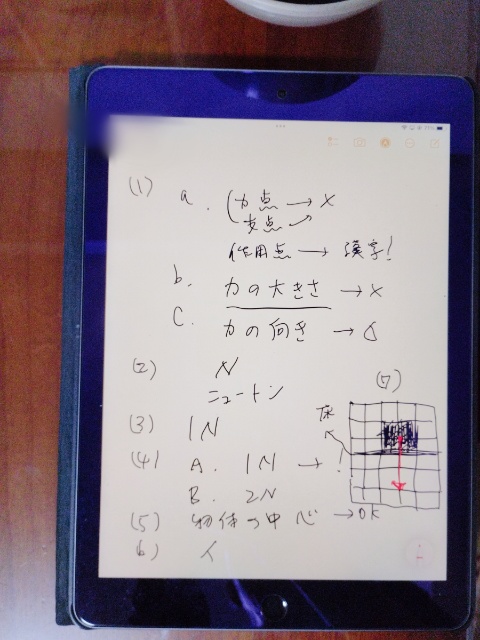 (1) a. (力点 → ×
支点
作用点 → 漢字!
b. 力の大きさ → ×
C. 力の向き → 
(2) N
ニュートン
(3) 1N
(4) A. 1N → !
B. 2N
(5) 物体の中心 → OK
(6) イ
(7)
床